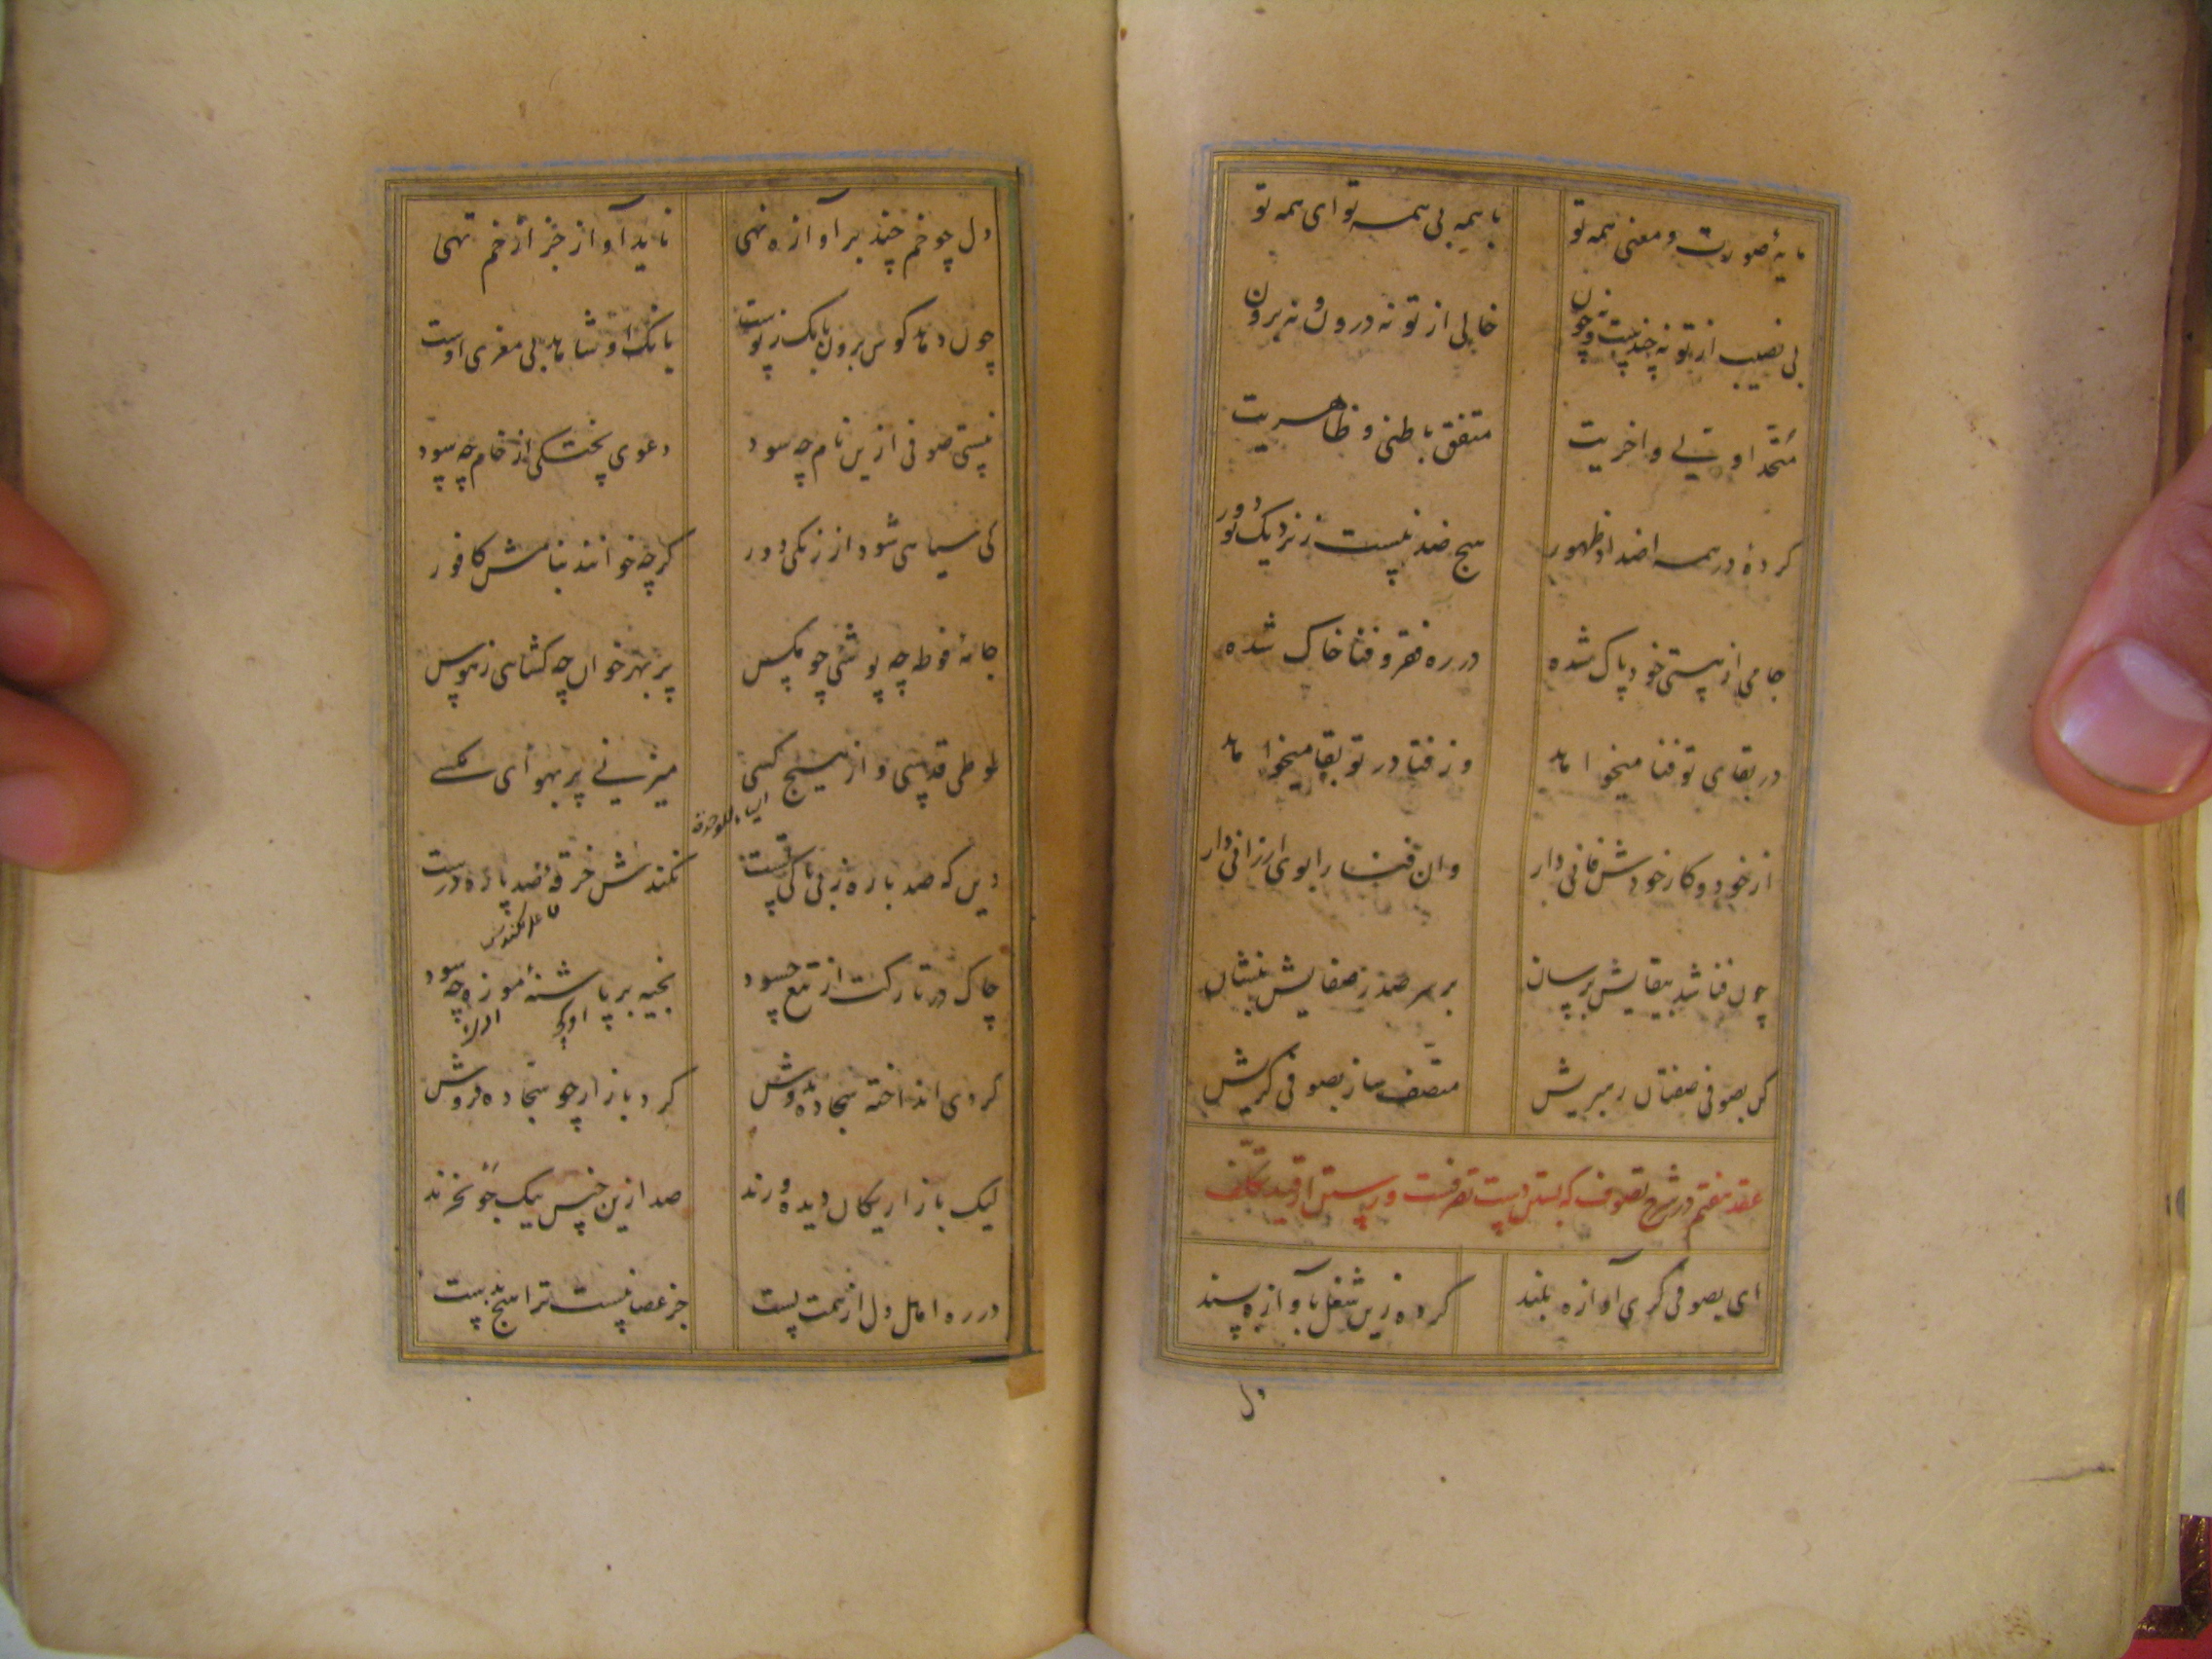 مایهٔ صورت و معنی همه تو با همه بی همه تو ای همه تو
بی نصیب از تو نه چندست و نه چون خالی از تو نه درون و نه برون
متّحد اولیت و اخریت متفق باطنی و ظاهریت
کردهٔ در همه اضداد ظهور هیچ ضد نیست ز نزدیک تو دور
جامی از هستی خود پاک شده در ره فقر و فنا خاک شده
در بقای تو فنا میخواهد وز فنا در تو بقا میخواهد
از خود و کار خودش فانی دار وان فنا را بوی ارزانی دار
چون فنا شد ببقایش برسان بر سر صدر صفایش بنشان
کن بصوفی صفتان رهبریش متّصف ساز بصوفی گریش
عقد هفتم در شرح تصوف که بستن دست تصرفست و رستن از قید تکلّف
ای بصوفی گری آوازه بلند کرده زین شغل بآوازه پسند
دل
دل چو خم چند بر آوازه نهی ناید آواز جز از خم تهی
چون دهد کوس برون بانک ز پوست بانک او شاهد بی مغزی اوست
نیستی صوفی ازین نام چه سود دعوی پختگی از خام چه سود
کی سیاهی شود از زنگی دور کرچه خوانند بنامش کافور
جامهٔ فوطه چه پوشی چو مگس پر بهر خوان چه کشای ز هوس
طوطی قدسی و از هیچ کسی میزنی پر بهوای مگسی
دین که صد پاره ز بی باکی تست نکندش خرقهٔ صد پاره درست
چاک در تارکت از تیغ حسود بخیه بر پاشنهٔ موزه چه سود
کردی انداخته سجاده بدوش کرد بازار چو سجاده فروش
لیک بازاریکان دیده ورند صد ازین جنس بیک جو نخرند
در ره اهل دل از همت پست جز عصا نیست ترا هیچ بدست